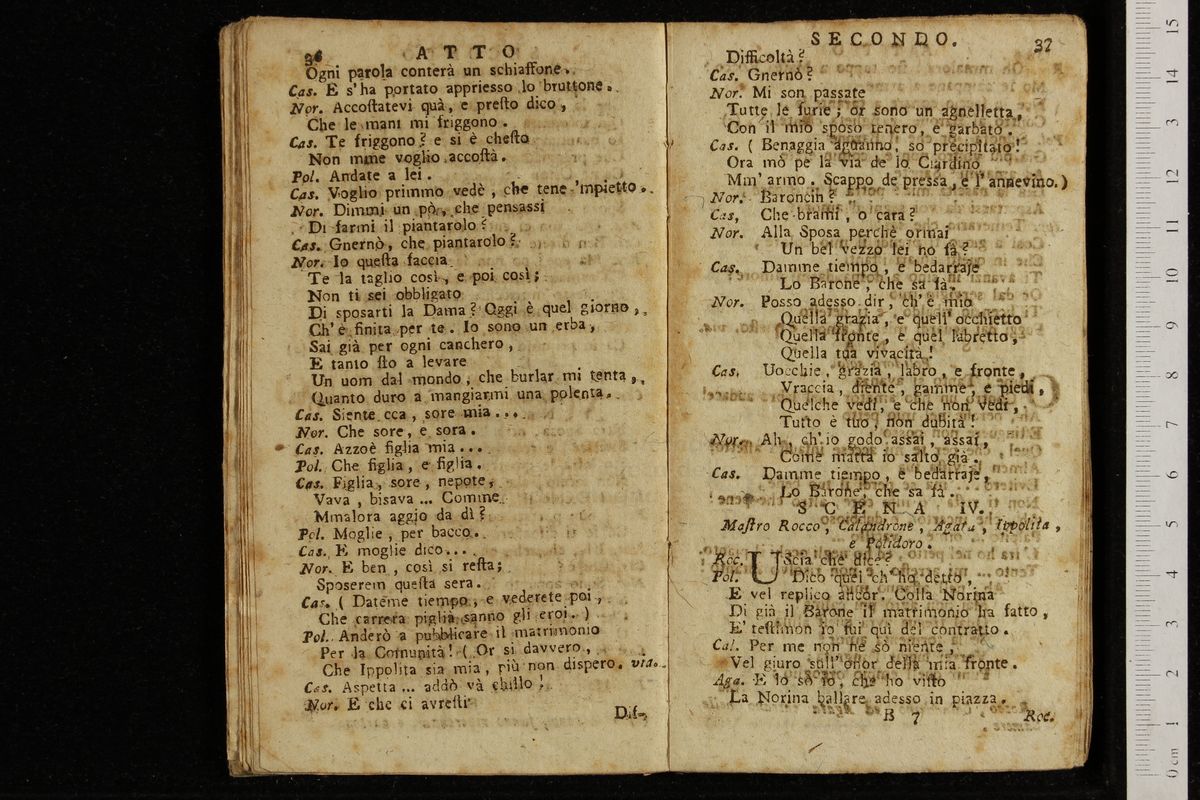 36 ATTO
Ogni parola conterà un schiaffone.
Cas. E s'ha portato appriesso lo bruttone.
Nor. Accoſtatevi quà, e preſto dico,
Che le mani mi friggono.
Cas. Te friggono? e si è cheſto
Non mme voglio accoſtà.
Pol. Andate a lei.
Cas. Voglio primmo vedè, che tene 'mpietto.
Nor. Dimmi un pò, che pensassi
Di farmi il piantarolo?
Cas. Gnernò, che piantarolo?
Nor. Io queſta faccia
Te la taglio così, e poi così;
Non ti sei obbligato
Di sposarti la Dama? Oggi è quel giorno,
Ch'è finita per te. Io sono un erba,
Sai già per ogni canchero,
E tanto ſto a levare
Un uom dal mondo, che burlar mi tenta,
Quanto duro a mangiarmi una polenta.
Cas. Siente cca, sore mia...
Nor. Che sore, e sora.
Cas. Azzoè figlia mia...
Pol. Che figlia, e figlia.
Cas. Figlia, sore, nepote,
Vava, bisava... Comme
Mmalora aggio da dì?
Pol. Moglie, per bacco.
Cas. E moglie dico...
Nor. E ben, così si reſta;
Sposerem queſta sera.
Cas. (Dateme tiempo, e vederete poi,
Che carrera piglià sanno gli eroi.)
Pol. Anderò a pubblicare il matrimonio
Per la Comunità! (Or sì davvero,
Che Ippolita sia mia, più non dispero. via.
Cas. Aspetta... addò và chillo!
Nor. E che ci avreſti
Dif-
SECONDO. 37
Difficoltà?
Cas. Gnernò?
Nor. Mi son passate
Tutte le furie; or sono un agnelletta,
Con il mio sposo tenero, e garbato.
Cas. (Benaggia aguanno, so precipitato!
Ora mò pe la via de lo Ciardino
Mm' armo. Scappo de pressa, e l' annevino.)
Nor. Baroncin?
Cas, Che brami, o cara?
Nor. Alla Sposa perchè ormai
Un bel vezzo lei no fà?
Cas. Damme tiempo, e bedarraje
Lo Barone, che sa fà.
Nor. Posso adesso dir, ch'è mio
Quella grazia, e quell' occhietto
Quella fronte, e quel labretto,
Quella tua vivacità!
Cas. Uocchie, grazia, labro, e fronte,
Vraccia, diente, gamme, e piedi,
Quelche vedi, e che non vedi,
Tutto è tuo, non dubità!
Nor. Ah, ch'io godo assai, assai,
Come matta io salto già.
Cas. Damme tiempo, e bedarraje,
Lo Barone, che sa fà.
SCENA IV.
Maſtro Rocco, Calandrone, Agata, Ippolita,
e Polidoro.
Roc. USciа che dice?
Pol. Dico quel ch' ho detto,
E vel replico ancor. Colla Norina
Di già il Barone il matrimonio ha fatto,
E' teſtimon io fui quì del contratto.
Cal. Per me non ne sò niente,
Vel giuro sull' onor della mia fronte.
Aga. E lo sò io, che ho viſto
La Norina ballare adesso in piazza.
B 7 Roc.